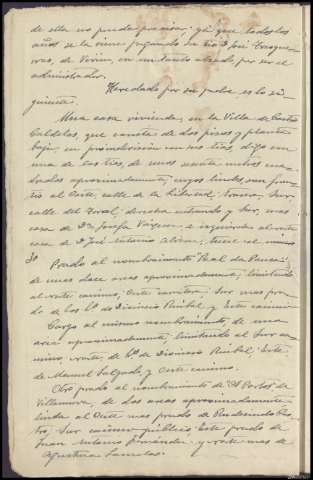 de ella no puedo precisar ya que todos los
años se le viene pagando su tío D. José
de Viveiro, en un tanto alzado por ser el
administrador.
Heredado por su padre es lo si-
guiente.
Una casa vivienda, en la Villa de Castro
Caldelas, que consta de dos pisos y planta
baja en proindivisión con sus tíos, digo con
una de sus tías, de unos metros cua-
drados aproximadamente; cuyos lindes son fren-
te al Oeste, calle de la Libertad, trasera, Sur
calle del derecha entrando y Sur, mas
casa de Dª Josefa Vázquez e izquierda al norte
casa de D. José Antonio
30
Prado al nombramiento Real da
de unas doce areas aproximadamente, limitando
al norte camino, Oeste Sur mas pra-
do de los hºs de Dionisio Rubal y Este camino
al mismo nombramiento, de una
area aproximadamente, limitando al Sur ca-
mino, norte, de hºs de Dionisio Rubal, Este
de Manuel Salgado y Oeste camino.
Otro prado al nombramiento de de
Villanueva, de dos areas aproximadamente
linda al Oeste mas prado de Rudesindo
Sur camino público Este prado de
Juan Antonio Fernández y norte mas de
Agustina